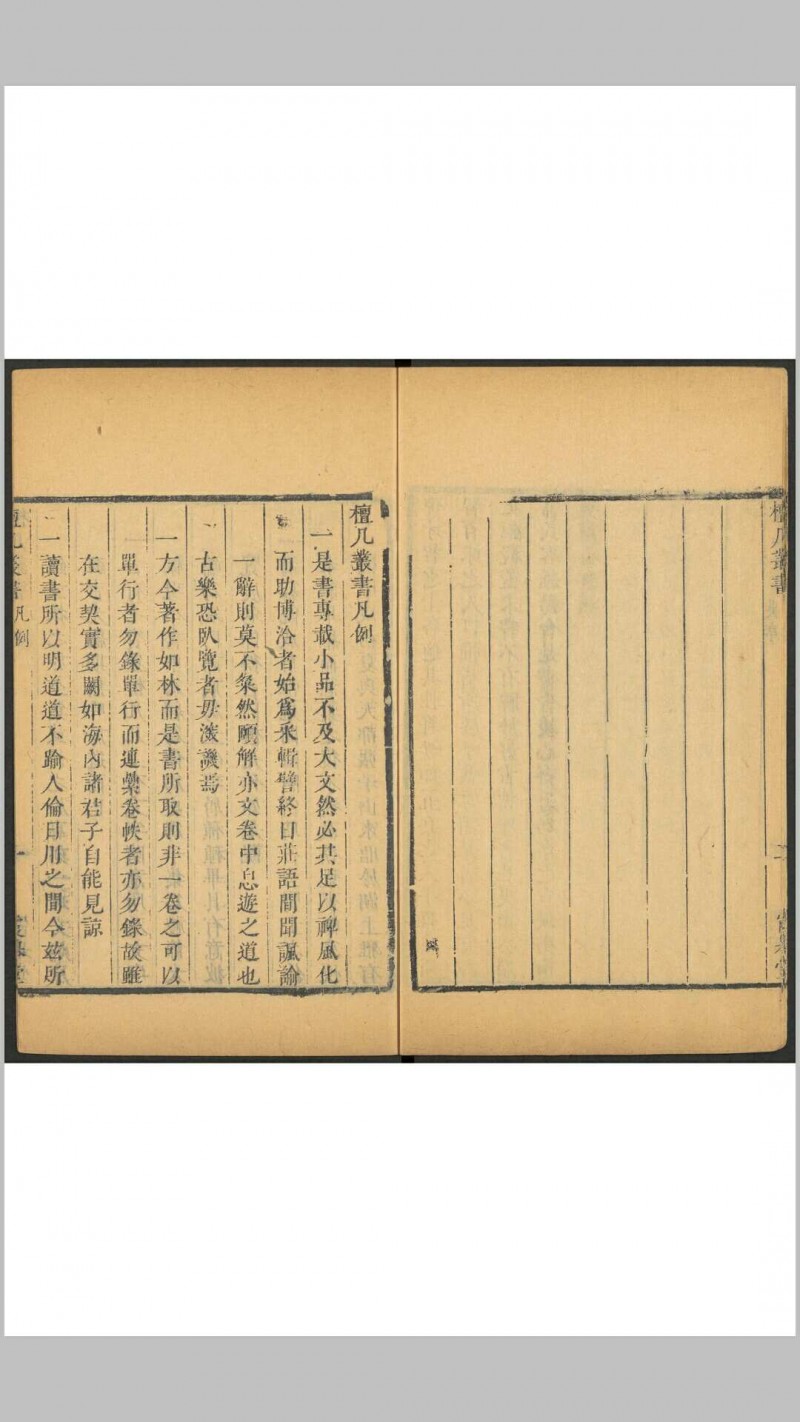 檀几叢書
檀几叢書凡例
一是書專載小品不及大文然必其足以裨風化
而助博洽者始爲采輯譬終日莊語間聞諷諭
一辭則莫不粲然頤解亦文卷中息遊之道也
古樂恐臥覽者毋滋譏焉
一方今著作如林而是書所取則非一卷之可以
單行者勿錄單行而連纍卷帙者亦勿錄故雖
在交契實多闕如海內諸君子自能見諒
一讀書所以明道道不踰人倫日用之間今玆所
檀几叢書 凡例 一 霞舉堂